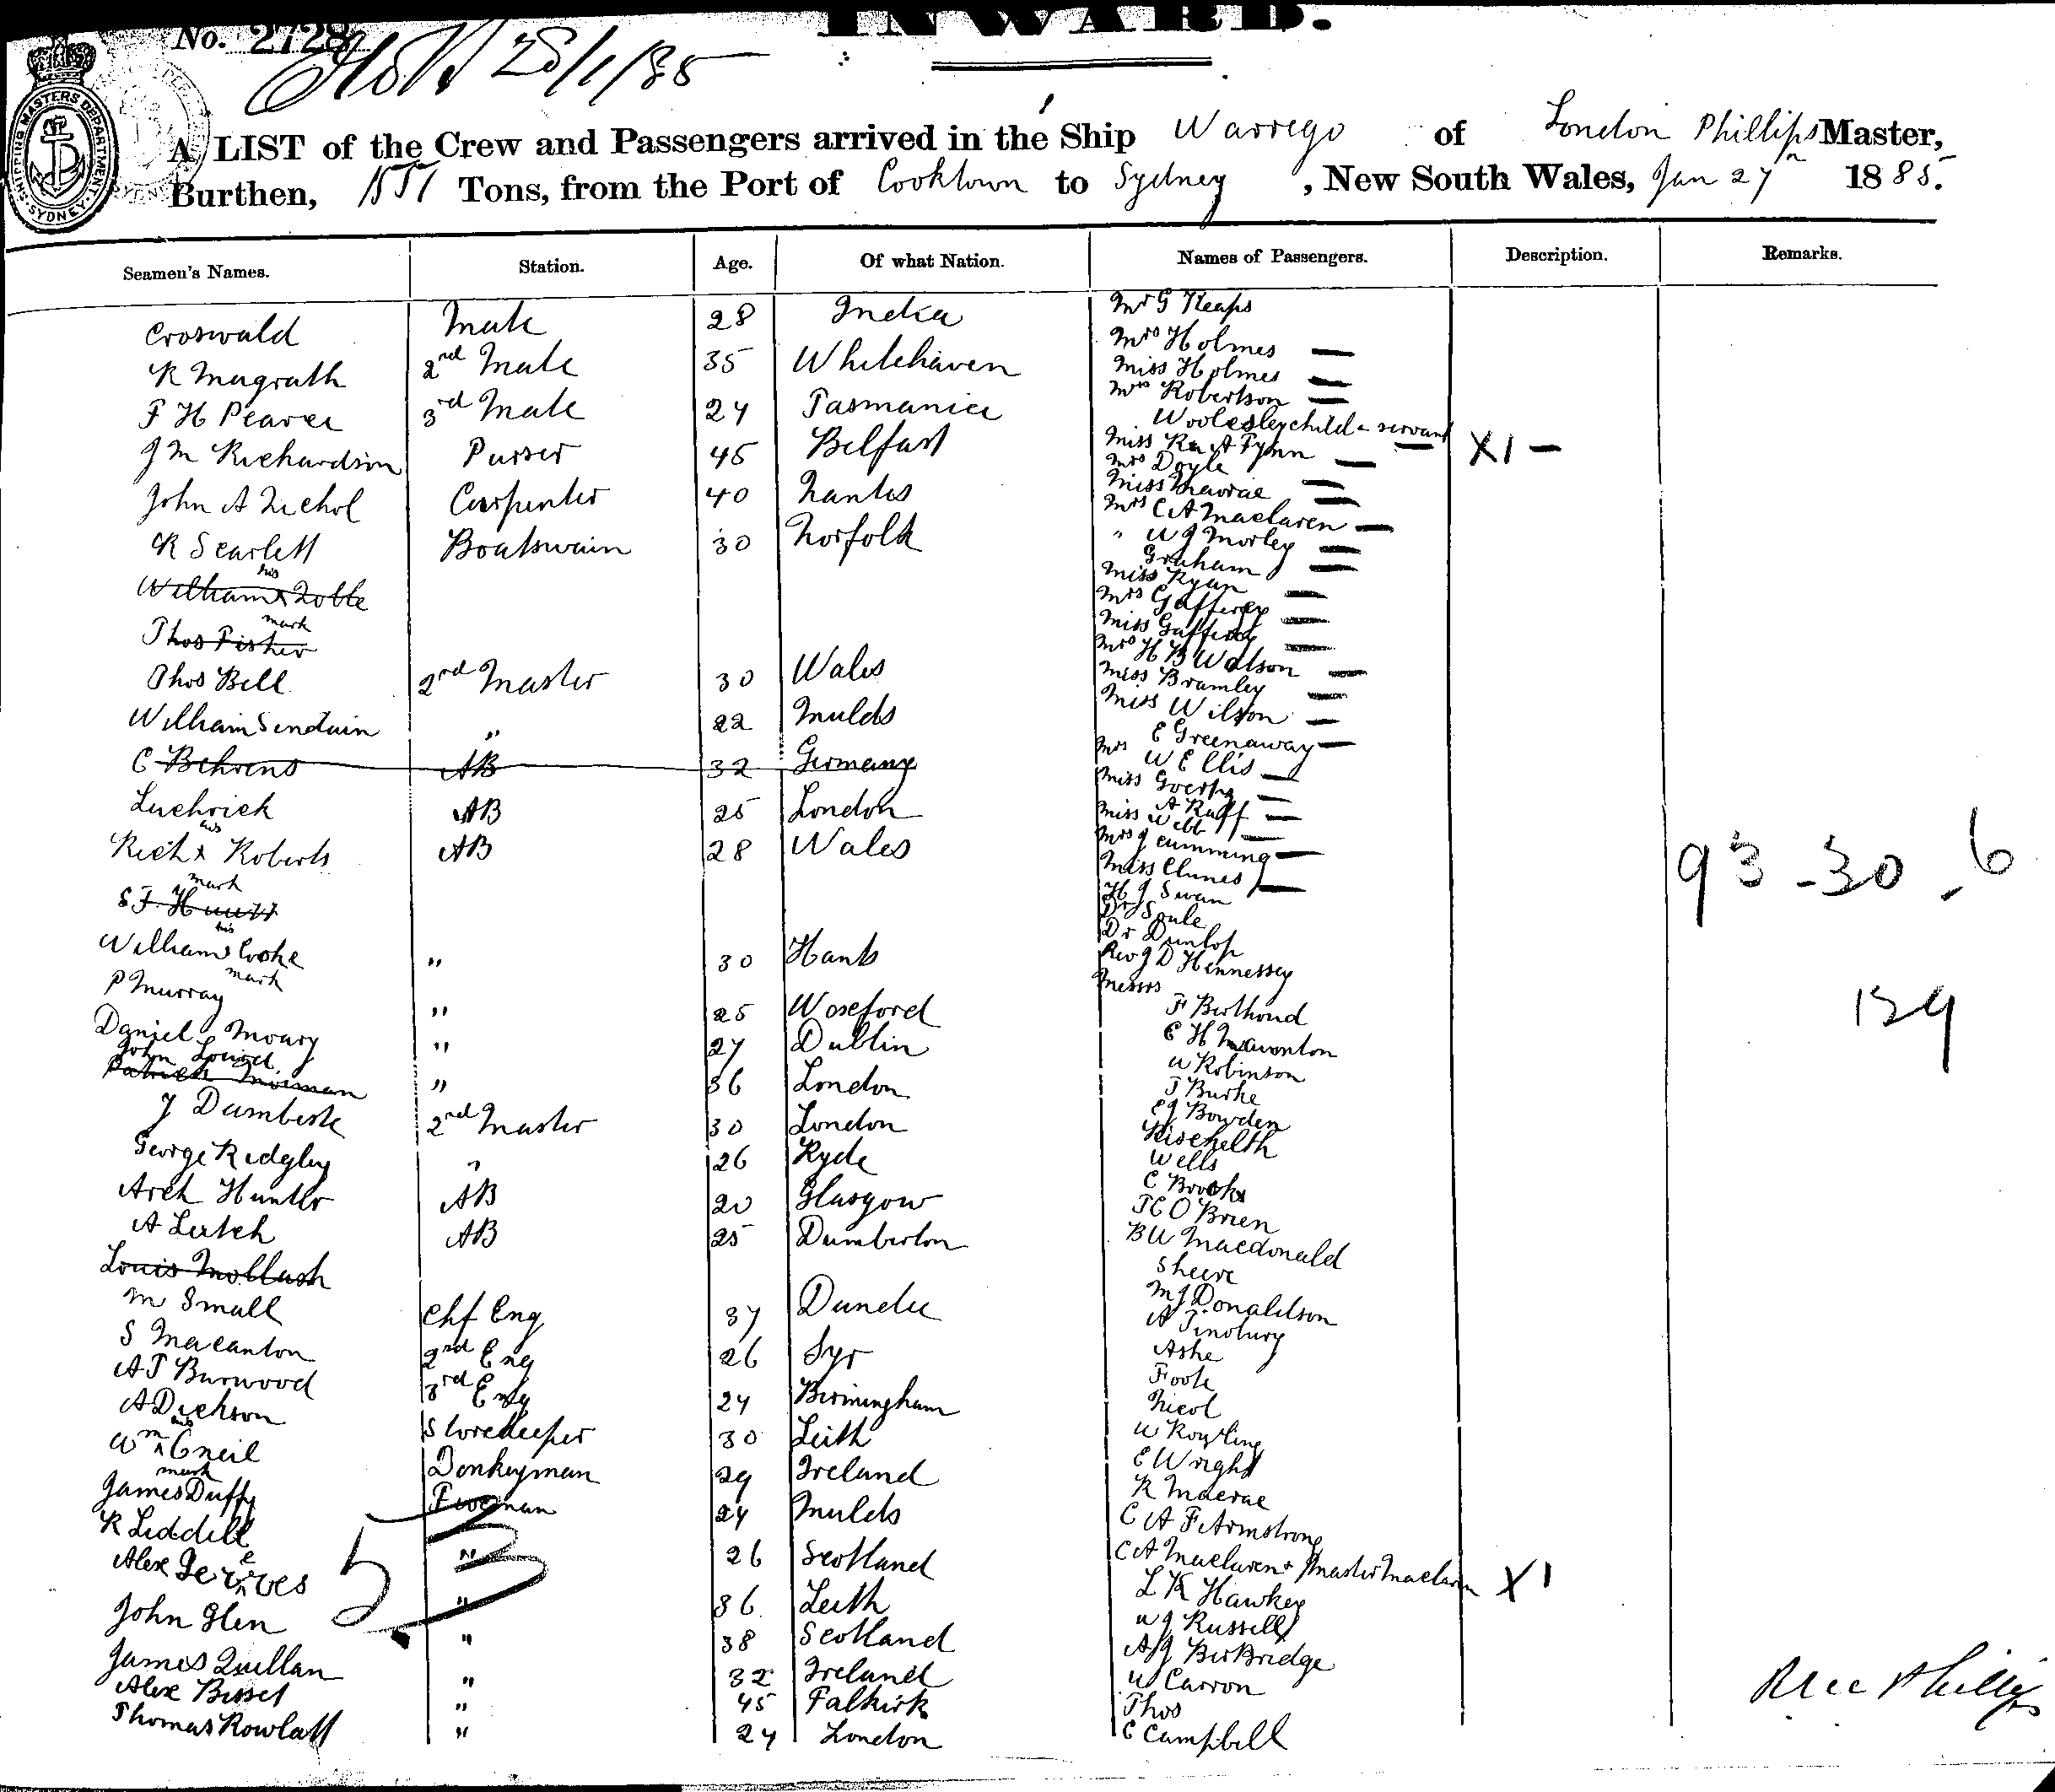 INWARD.
No. 2728
28/1/85
SHIPPING MASTERS DEPARTMENT SYDNEY
A LIST of the Crew and Passengers arrived in the Ship Warrego of London Phillips Master,
Burthen, 1551 Tons, from the Port of Cooktown to Sydney, New South Wales, Jan 27th 1885.
Seamen's Names. Station. Age. Of what Nation. Names of Passengers. Description. Remarks.
Croswald Mate 28 India
R Magrath 2nd Mate 35 Whitehaven
F H Pearce 3rd Mate 24 Tasmania
J M Richardson Purser 45 Belfast
John A Nichol Carpenter 40 Nantes
R Scarlett Boatswain 30 Norfolk
his
William x Noble
mark
Thos Fisher
Thos Bell 2nd Master 30 Wales
William Sinduin " 22 Mulds
C Behrens AB 32 Germany
Luchrick AB 25 London
his
Rich x Roberts AB 28 Wales
mark
S F
his
William x Cooke " 30 Hants
mark
P Murray " 25 Woseford
Daniel Moury " 27 Dublin
John
Patrick " 36 London
J Dumbeste 2nd Master 30 London
George Ridgley " 26 Ryde
Arch Hunter AB 20 Glasgow
A Leitch AB 25 Dumberton
Louis Mollash
M Small Chf Eng 37 Dundee
S Macanton 2nd Eng 26 Syr
A T Burwood 3rd Eng 24 Birmingham
A Dickson Storekeeper 30 Leith
his
Wm x Cneil Donkeyman 29 Ireland
mark
James Duffy Fireman 24 Mulds
R Liddell " 26 Scotland
Alex Jerves " 36 Leith
John Glen " 38 Scotland
James Quillan " 32 Ireland
Alex Bisset " 45 Falkirk
Thomas Rowlatt " 24 London
53
Mr G Heaps
Mrs Holmes
Miss Holmes
Mrs Robertson
Woolesley child & servant X1
Miss A Fynn
Mrs Doyle
Miss Macrae
Mrs C A Maclaren
" W J Morley
Graham
Miss Ryan
Mrs Gaffney
Miss Gaffney
Mrs H B Watson
Miss Bramley
Miss Wilson
E Greenaway
Mrs W Ellis
Miss
A Raff
Miss Webb
Mrs J Cumming
Miss Clunes
H J Swan
Dr Soule
Dr Dunlop
Rev J D Hennessey
Messrs
F Berthoud
E H
W Robinson
T Burke
E J Bowden
Wells
C Brooks
T C O Brien
B W Macdonald
Sheere
M J Donaldson
A Tinsbury
Ashe
Foote
Nicol
W Rowling
E Wright
R Macrae
C A F Armstrong
C A Maclaren & Master Maclaren X1
L K Hawkey
W J Russell
A J BerBridge
W Carron
Thos
C Campbell
93-30-6
129
Phillips